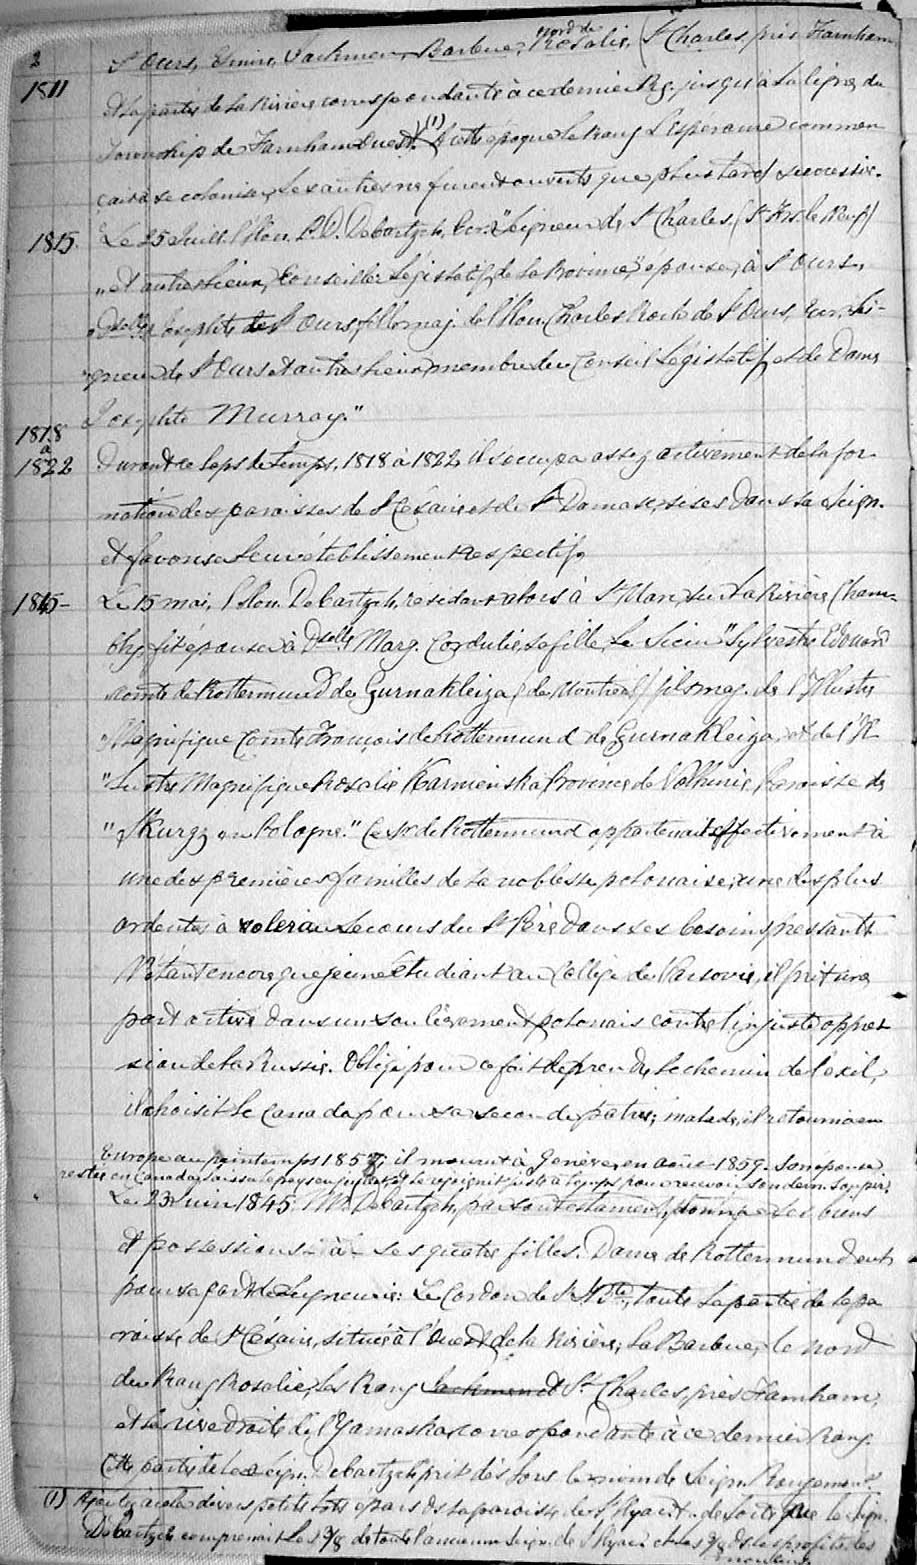 2
St Ours, Emire, Jackmen, Barbue, Nord de Rosalie, (St Charles, près Farnham
1811 et la partie de la Rivière correspondante à ce dernier Rg, jusqu'à la ligne du
Township de Farnham Ouest. (1) A cette époque le Rang L'Esperance commen
çait à se coloniser, les autres ne furent ouverts que plus tard successiv.
1815 Le 25 Juill. l'Hon. P. D. Debartzch, Ecr. "Seigneur de St Charles, (St Frs. le Neuf)
"et autres lieux, Conseiller Législatif de la Province" épouse, à St Ours,
"Dselle Josephte de St Ours, fille maj. de l'Hon. Charles Roch de St Ours, Ecr. Sei-
"gneur de St Ours et autres lieux, membre du Conseil Législatif, et de Dame
Josephte Murray."
1818 à 1822 Durant ce laps de temps, 1818 à 1822, il s'occupa assez activement de la for
mation des paroisses de St Césaire et de St Damase, sises dans sa Seign.
et favorisa leur établissement respectif.
1845 - Le 15 mai, l'Hon. Debartzch, résidant alors à St Marc, sur la Rivière Cham-
bly, fit épouser à Dselle Marg. Cordulie, sa fille, le Sieur "Sylvestre Edouard
comte de Rottermund de Gurnakleiza (de Montréal) fils maj. de l'Illustre
"Magnifique Comte François de Rottermund de Gurnakleiza, et de l'Il
"lustre Magnifique Rosalie Karmienska Province de Volhinie, Paroisse de
"Skurgz en Pologne." Ce Sr de Rottermund appartenait effectivement à
une des premières familles de la noblesse polonaise, une des plus
ardentes à voler au secours du St Père dans ses besoins pressants
N'étant encore que jeune étudiant au Collège de Varsovie, il prit une
part active dans un soulègement polonais contre l'injuste oppres
sion de la Russie. Obligé pour ce fait de prendre le chemin de l'exil,
il choisit le Canada pour sa seconde patrie; malade, il retourna en
Europe au printemps 1857; il mourut à Genève, en août 1859. Son épouse
restée en Canada, laissa le pays en juillet et le rejoignit juste à temps pour recevoir son dern. soupir.
Le 23 Juin 1845. Mr Debartzch, par son testament, donna ses biens
et possessions à ses quatre filles. Dame de Rottermund eut
pour sa part de Seigneurie: Le Cordon de St Bte, toute la partie de la pa
roisse de St Césaire, située à l'Ouest de la rivière; la Barbue, le nord
du Rang Rosalie, les Rang Jackmen et St Charles, près Farnham,
et la rive droite de l'Yamaska correspondante à ce dernier Rang.
Cette partie de la Seign. Debartzch prit dès lors le nom de Seign. Rougemont
(1) Ajoutez à cela divers petits lots épars de la paroisse de St Hyact. de sorte que la Seign.
Debartzch comprenait les 3/8 de toute l'ancienne Seign. de St Hyact. et les 3/8 de les profits des
moulins.